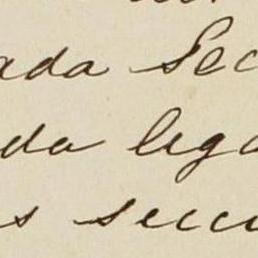 ada Sec
da lega
s secu